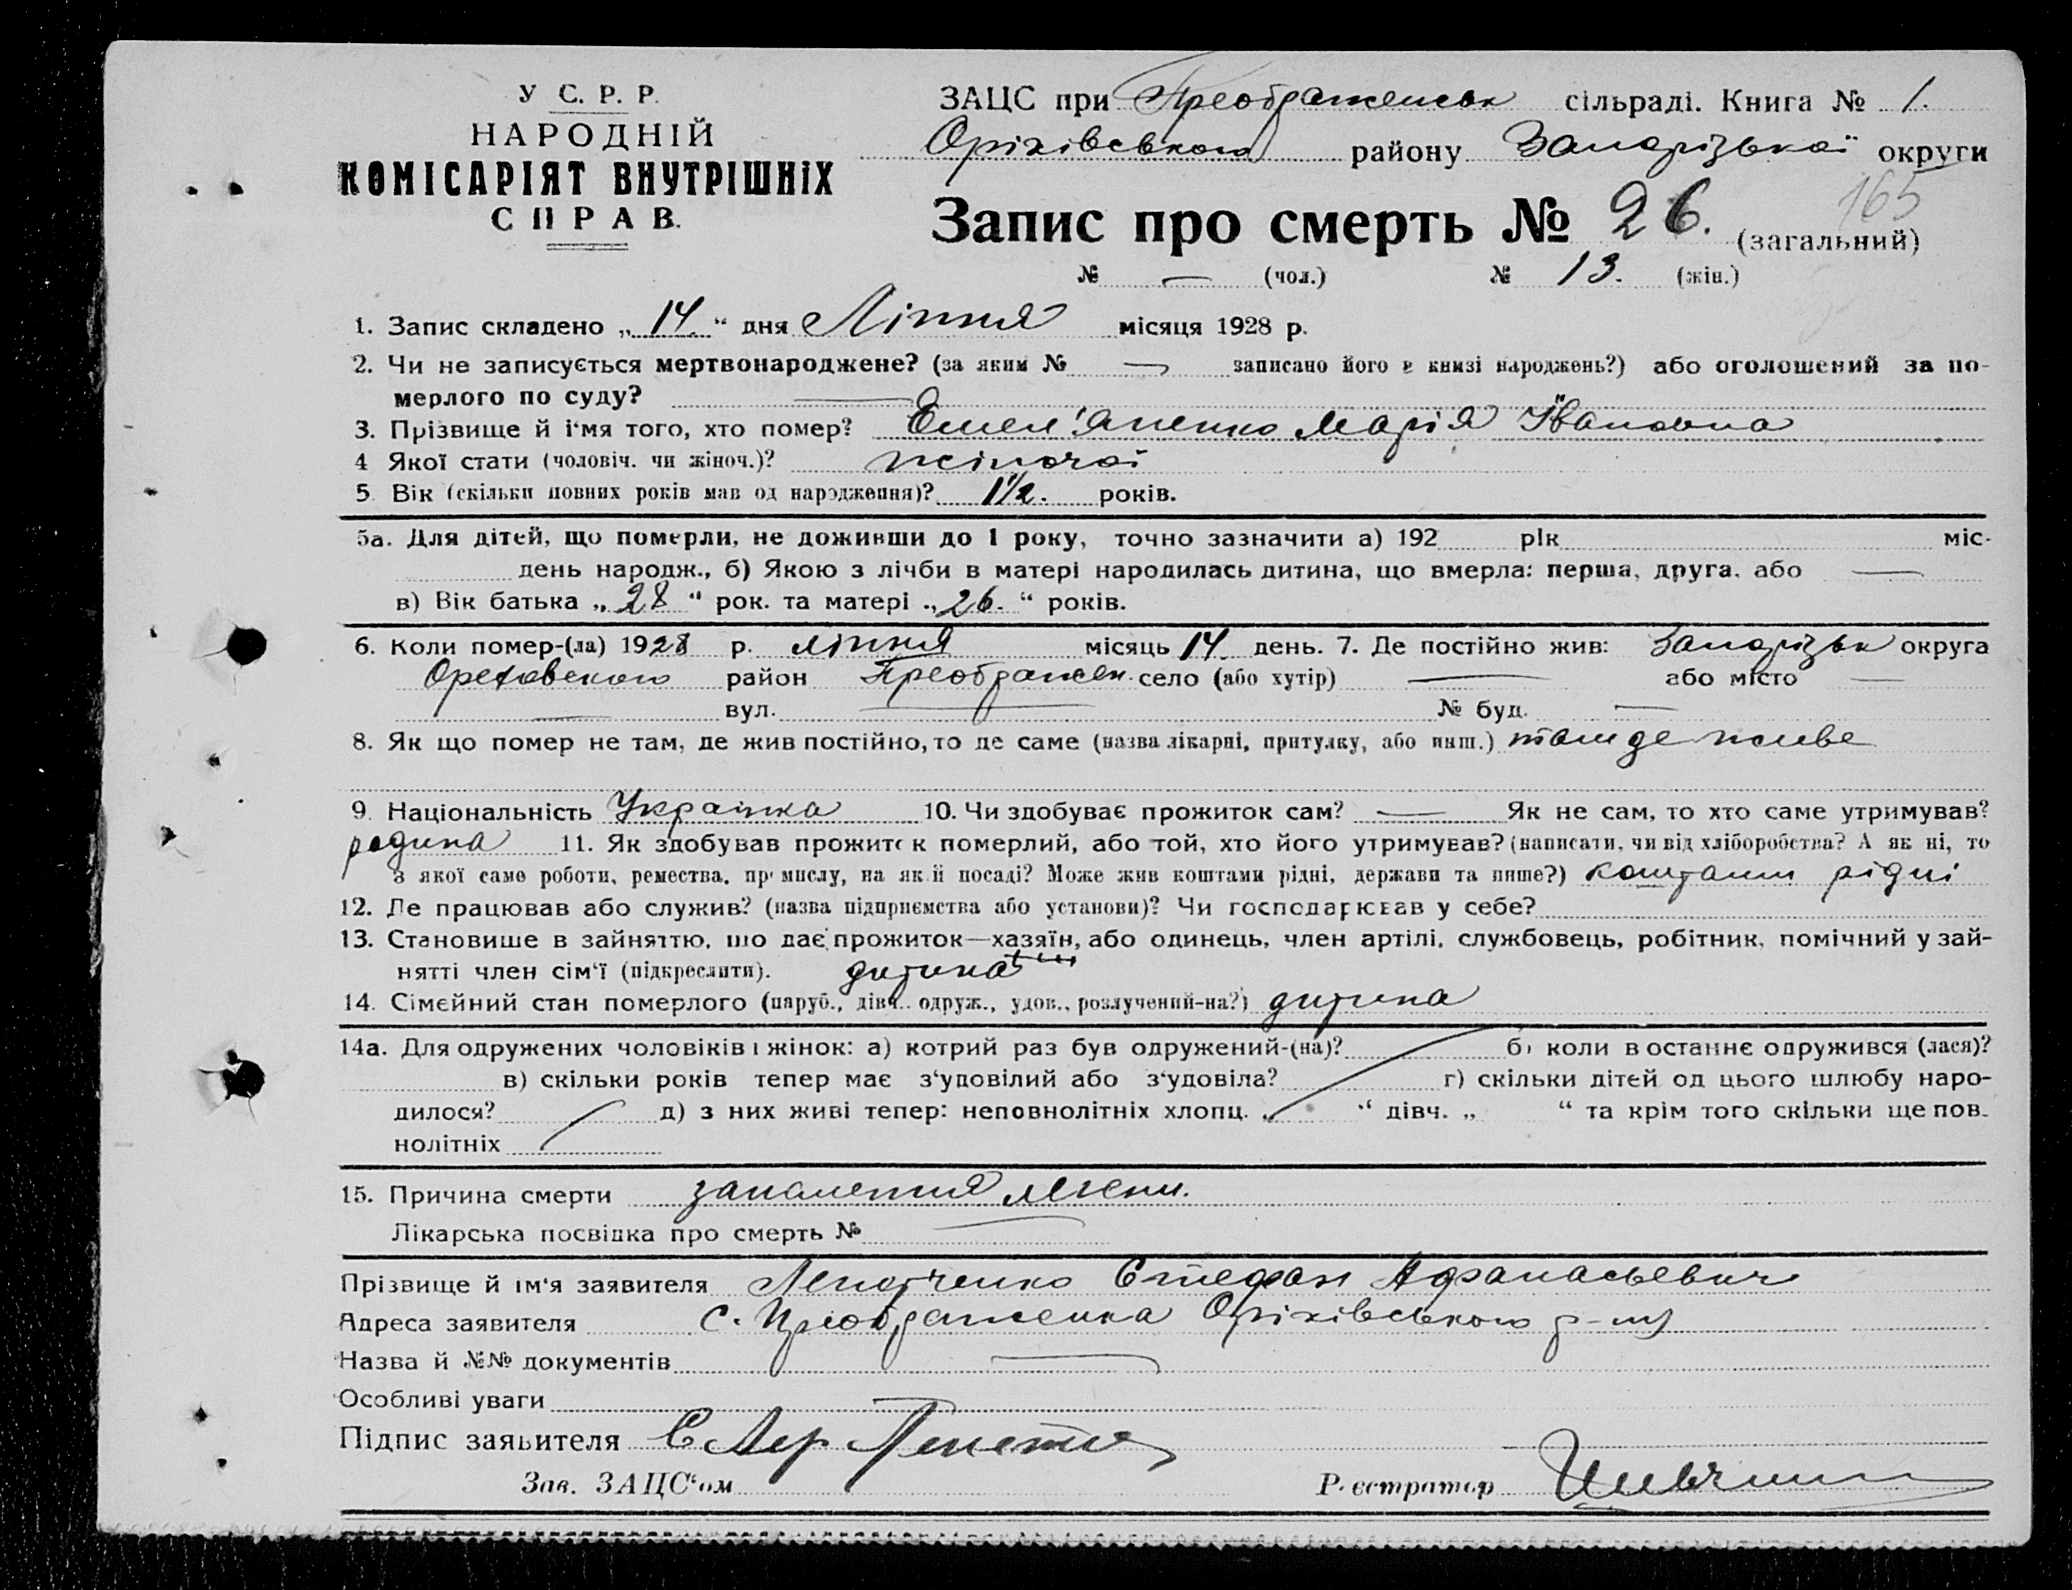 У С. Р. Р.
НАРОДНІЙ
КОМІСАРІЯТ ВНУТРІШНІХ
СПРАВ.
ЗАЦС при Преображенськ сільраді. Книга № 1.
Оріхівського району Запорізької округи
165
Запис про смерть № 26. (загальний)
№ — (чол.) № 13. (жін.)
1. Запис складено „14.“ дня Ліпня місяця 1928 р.
2. Чи не записується мертвонароджене? (за яким № — записано його в книзі народжень?) або оголошений за по-
мерлого по суду? —
3. Прізвище й і'мя того, хто помер? Емел'яненко Марія Івановна
4 Якої стати (чоловіч. чи жіноч.)? жіночої
5. Вік (скільки повних років мав од народження)? 1½. років.
5а. Для дітей, що померли, не доживши до 1 року, точно зазначити а) 192 рік міс.
день народж., б) Якою з лічби в матері народилась дитина, що вмерла: перша, друга, або —
в) Вік батька „28“ рок. та матері „26.“ років.
6. Коли помер-(ла) 1928 р. ліпня місяць 14 день. 7. Де постійно жив: Запорізьк округа
Ореховского район Преображен. село (або хутір) — або місто —
— вул. — № буд. —
8. Як що помер не там, де жив постійно, то де саме (назва лікарні, притулку, або инш.) там де живе
9. Національність Українка 10. Чи здобуває прожиток сам? — Як не сам, то хто саме утримував?
родина 11. Як здобував прожиток померлий, або той, хто його утримував? (написати, чи від хліборобства? А як ні, то
з якої саме роботи, ремества, промислу, на якій посаді? Може жив коштами рідні, держави та инше?) коштами рідні
12. Де працював або служив? (назва підприємства або установи)? Чи господарював у себе?
13. Становище в зайняттю, що дає прожиток—хазяїн, або одинець, член артілі, службовець, робітник, помічний у зай-
нятті член сім'ї (підкреслити). дитина
14. Сімейний стан померлого (паруб., дівч. одруж., удов., розлучений-на?) дитина
14а. Для одружених чоловіків і жінок: а) котрий раз був одружений-(на)? б) коли в останнє одружився (лася)?
в) скільки років тепер має з'удовілий або з'удовіла? г) скільки дітей од цього шлюбу наро-
дилося? д) з них живі тепер: неповнолітніх хлопц. „ “ дівч. „ “ та крім того скільки ще пов.
нолітніх
15. Причина смерти запалення легени.
Лікарська посвідка про смерть № —
Прізвище й ім'я заявителя Степан Афанасьевич
Адреса заявителя с. Преображенка Оріхівського р-ну
Назва й №№ документів —
Особливі уваги
Підпис заявителя
Зав. ЗАЦС'ом Реєстратор